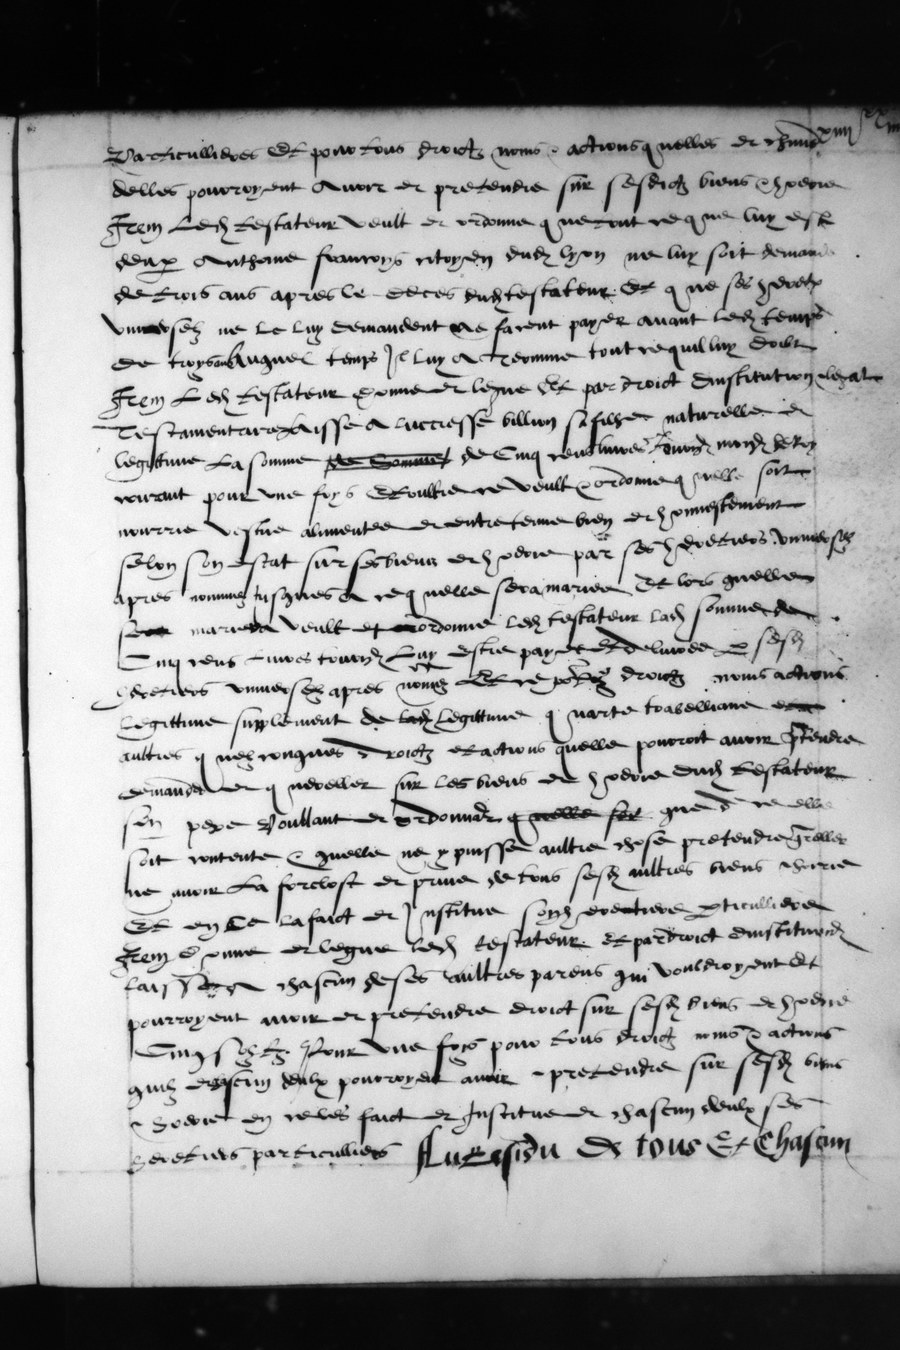 Particullieres Et pour tous droictz noms & actions quelles et chacune
delles pourroyent avoir et pretendre sur sesdictz biens & hoirie
Item Ledict testateur veult et ordonne que tout ce que luy est
deu par Anthoine francoys citoyen dudict lyon ne luy soit demande
de trois ans apres le deces dudict testateur Et que ses heretiers
universelz ne le luy demandent ne facent payer avant ledict temps
de troys ans Auquel temps Il luy a redonne tout ce quil luy doibt
Item Ledict testateur donne et legue Et par droict dinstitution legat
Testamentaire Laisse a Lucresse billion sa fille naturelle et
legitime La somme de Cinq cens livres tournoys monnoye du Roy
courant pour une foys Et oultre ce veult & ordonne quelle soit
nourrie vestue alimentee et entretenue bien et honnestement
selon son estat sur ses biens et hoirie par ses heretiers universelz
apres nommez jusques a ce quelle sera mariee Et lors quelle
sera mariee veult et ordonne ledict testateur ladicte somme de
Cinq cens livres tournoys Luy estre payee et delivree par sesdictz
heretiers universelz apres nommez Et ce pour tous droictz noms actions
Legittime supplement de Legittime quarte trabellianne et
aultres quelzconques droictz et actions quelle pourroit avoir pretendre
demander et quereller sur les biens et hoirie dudict testateur
son pere Voullant et ordonnant que de ce elle
soit contente & quelle ne y puisse aultre chose pretendre quereller
ne avoir La forclost et prive de tous sesdictz aultres biens & hoirie
Et en Ce la faict et Institue son heretiere particulliere
Item donne et legue ledict testateur Et par droict dinstitution
laisse a chascun de ses aultres parens qui vouldroyent Et
pourroyent avoir et pretendre droict sur sesdictz biens et hoirie
Cinq solz tz. Pour une foys pour tous droictz noms & actions
quilz et chascun deulx pourroyent avoir & pretendre sur sesdictz biens
& hoirie en ce les faict et Institue et chascun deulx ses
heretiers particulliers Au residu De tous Et Chascun